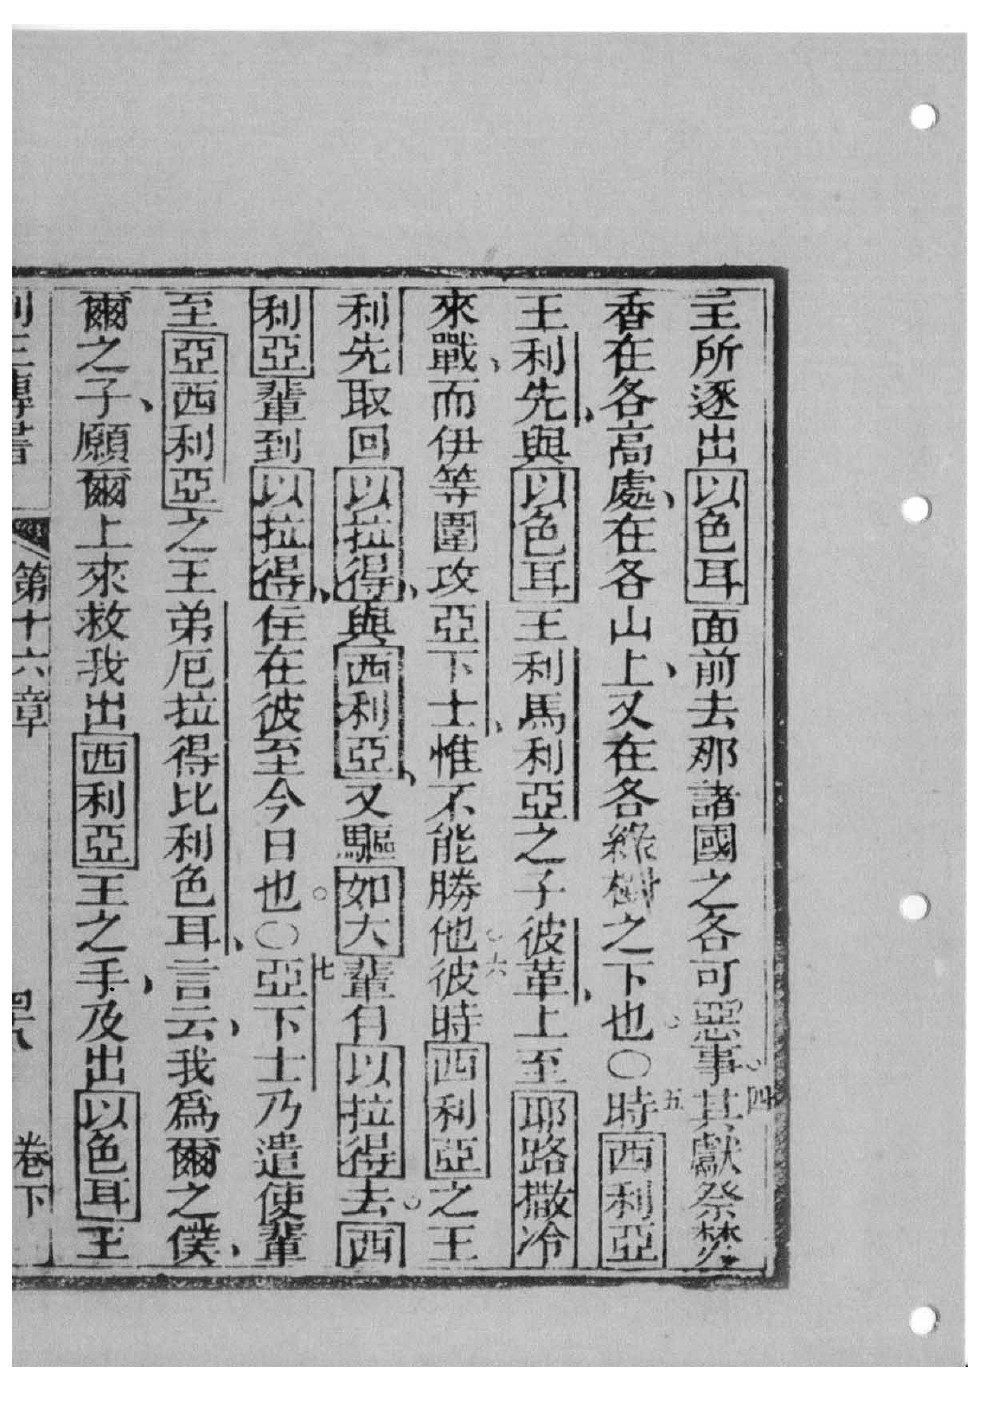 主所逐出以色耳面前去那諸國之各可惡事四其獻祭焚
香在各高處、在各山上、又在各綠樹之下也。○五時西利亞
王利先、與以色耳王利馬利亞之子彼革、上至耶路撒冷
來戰、而伊等圍攻亞下士、惟不能勝他。六彼時西利亞之王
利先取回以拉得、與西利亞、又驅如大輩自以拉得去。西
利亞輩到以拉得、住在彼至今日也。○七亞下士乃遣使輩
至亞西利亞之王弟厄拉得比利色耳、言云、我為爾之僕、
爾之子、願爾上來救我出西利亞王之手、及出以色耳王
第十六章 卷下